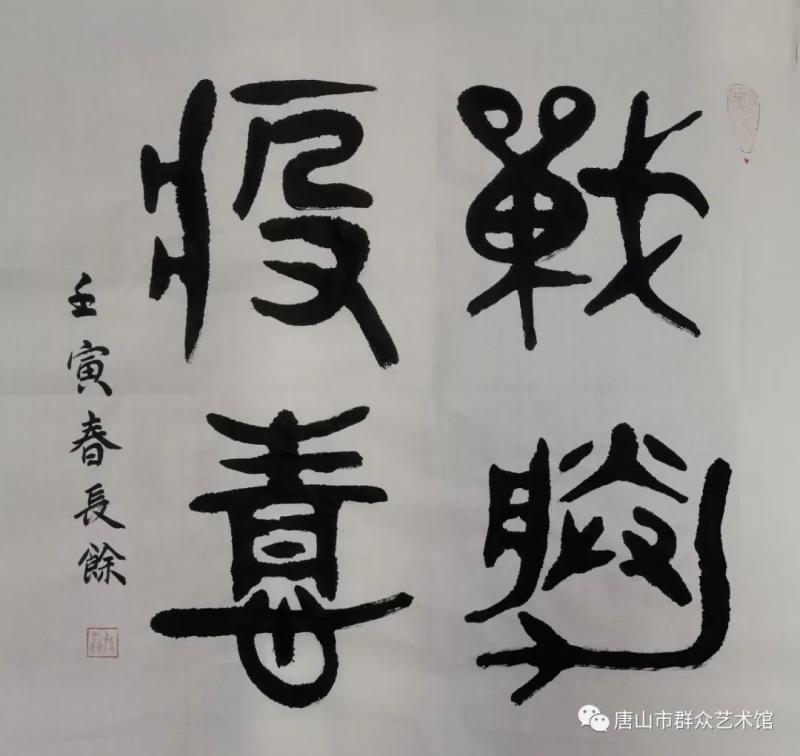 戰勝
疫毒
壬寅春長餘
唐山市群众艺术馆